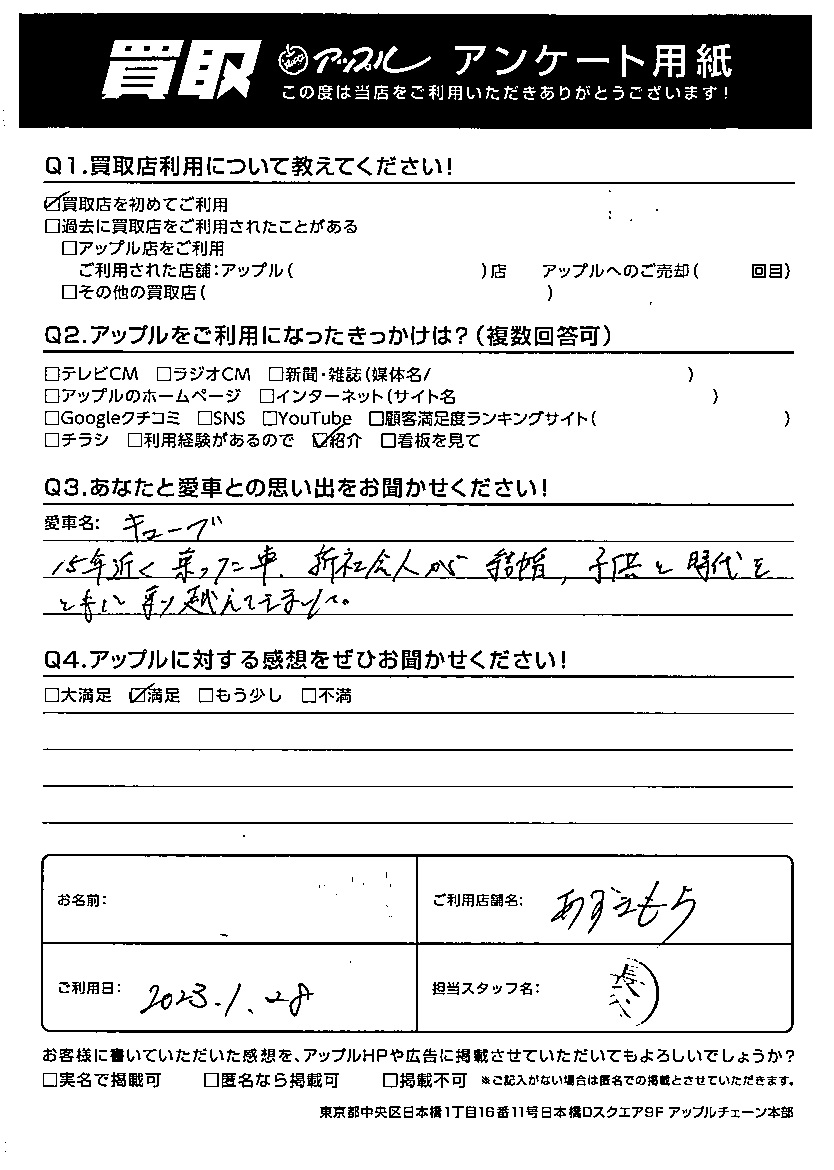 買取 アップル アンケート用紙
この度は当店をご利用いただきありがとうございます!
Q1.買取店利用について教えてください!
☑買取店を初めてご利用
□過去に買取店をご利用されたことがある
□アップル店をご利用
ご利用された店舗:アップル( )店 アップルへのご売却( 回目)
□その他の買取店( )
Q2.アップルをご利用になったきっかけは?(複数回答可)
□テレビCM □ラジオCM □新聞・雑誌(媒体名/ )
□アップルのホームページ □インターネット(サイト名 )
□Googleクチコミ □SNS □YouTube □顧客満足度ランキングサイト( )
□チラシ □利用経験があるので ☑紹介 □看板を見て
Q3.あなたと愛車との思い出をお聞かせください!
愛車名: キューブ
15年近く乗った車、新社会人から結婚、子供と時代を
ともに乗り越えてきました。
Q4.アップルに対する感想をぜひお聞かせください!
□大満足 ☑満足 □もう少し □不満
お名前:
ご利用店舗名: あずまもち
ご利用日: 2023.1.28
担当スタッフ名:
お客様に書いていただいた感想を、アップルHPや広告に掲載させていただいてもよろしいでしょうか?
□実名で掲載可 □匿名なら掲載可 □掲載不可 ※ご記入がない場合は匿名での掲載とさせていただきます。
東京都中央区日本橋1丁目16番11号日本橋Dスクエア9F アップルチェーン本部